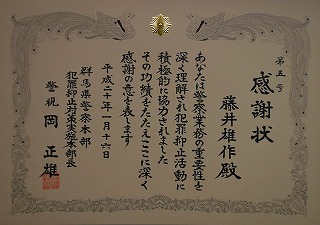 第五号
感謝状
藤井雄作殿
あなたは警察業務の重要性を
深く理解され犯罪抑止活動に
積極的に協力されました
その功績をたたえここに深く
感謝の意を表します
平成二十年一月十六日
群馬県警察本部
犯罪抑止対策実施本部長
警視 岡正雄